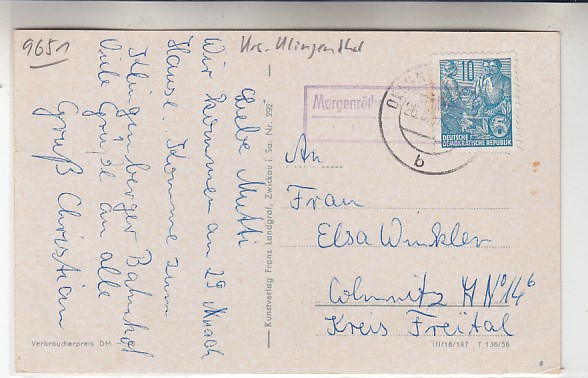 9651
Krs. Klingenthal
Liebe Mutti
Wir kommen am 29 nach
Hause. Komme zum
Klingenberger Bahnhof
Viele Grüße an alle
Gruß Christian
Kunstverlag Franz Landgraf, Zwickau i. Sa. Nr. 292
Morgenröthe
b
10
DEUTSCHE
DEMOKRATISCHE REPUBLIK
An
Frau
Elsa Winkler
Colmnitz H No 14b
Kreis Freital
Verbraucherpreis DM
III/18/197 T 136/56